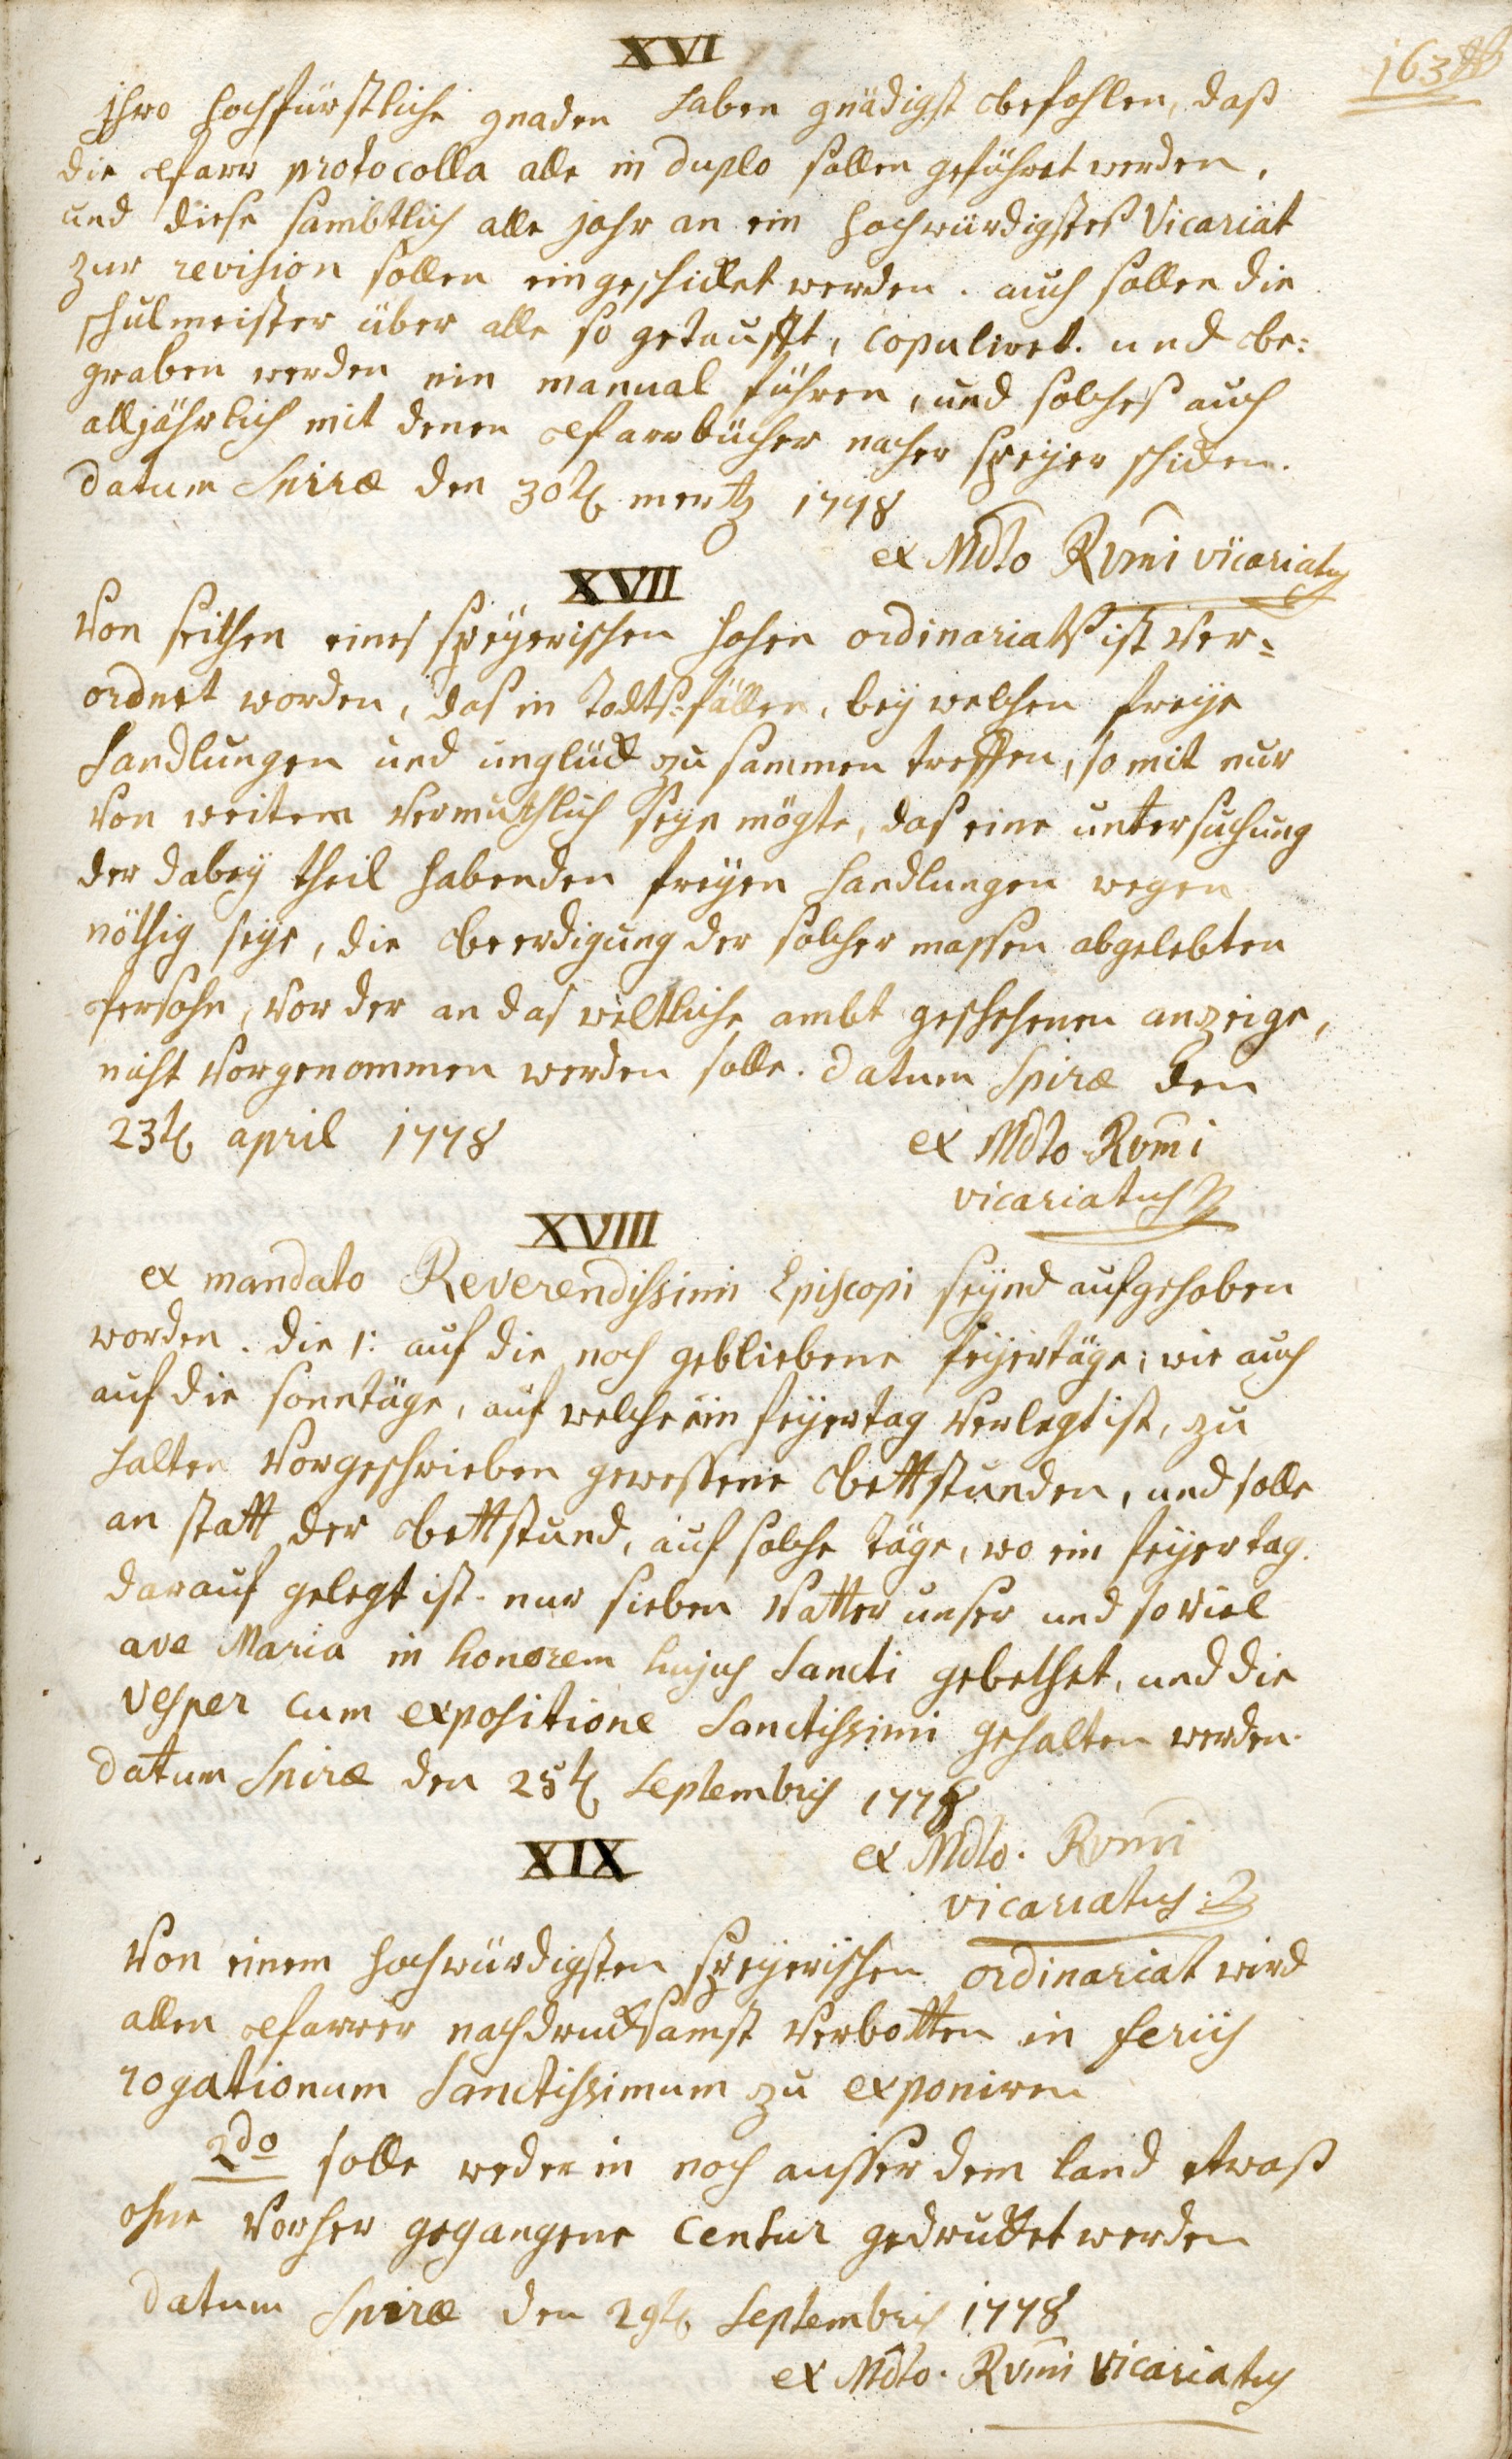 XVI
163
ihro hochfürstliche gnaden haben gnädigst befohlen, daß
die pfarr protocolla alle in duplo sollen geführet werden,
und diese sambtlich alle jahr an ein hochwürdigstes Vicariat
zur revision sollen eingeschicket werden. auch sollen die
schulmeister über alle so getaufft, copuliret. und be:
graben werden ein manual führen, und solches auch
alljährlich mit denen pfarrbücher nacher speyer schicken.
datum Spiræ den 30t mertz 1778
ex Mdto Rvmi vicariatus
XVII
Von seithen eines speyerischen hohen ordinariats ist ver=
ordnet worden, das in Todts=fällen, bey welchen freye
handlungen und unglück zu sammen treffen, so mit nur
von weitem vermuthlich seyn mögte, das eine untersuchung
der dabey theil habenden freyen handlungen wegen
nöthig seye, die beerdigung der solcher massen abgelebten
persohn, vor der an das weltliche ambt geschehenen anzeige,
nicht vorgenommen werden solle. datum Spiræ den
23t april 1778
ex Mdto Rvmi
vicariatus
XVIII
ex mandato Reverendissimi Episcopi seynd aufgehoben
worden. die 1: auf die noch gebliebene feyertäge; wie auch
auf die sonntäge, auf welche ein feyertag verlegt ist, zu
halten vorgeschrieben gewessene bettstunden, und solle
an statt der bettstund, auf solche täge, wo ein feyertag
darauf gelegt ist. nur sieben Vatter unser und so viel
ave Maria in honorem hujus Sancti gebethet, und die
Vesper cum expositione Sanctissimi gehalten werden.
datum Spiræ den 25t Septembris 1778
ex Mdto. Rvmi
vicariatus
XIX
Von einem hochwürdigsten speyerischen ordinariat wird
allen pfarrer nachdrucksamst verbotten in feriis
rogationum Sanctissimum zu exponiren
2do solle weder in noch ausser dem land etwaß
ohne vorher gegangene Censur gedrucket werden
datum Spiræ den 29t Septembris 1778
ex Mdto. Rvmi vicariatus